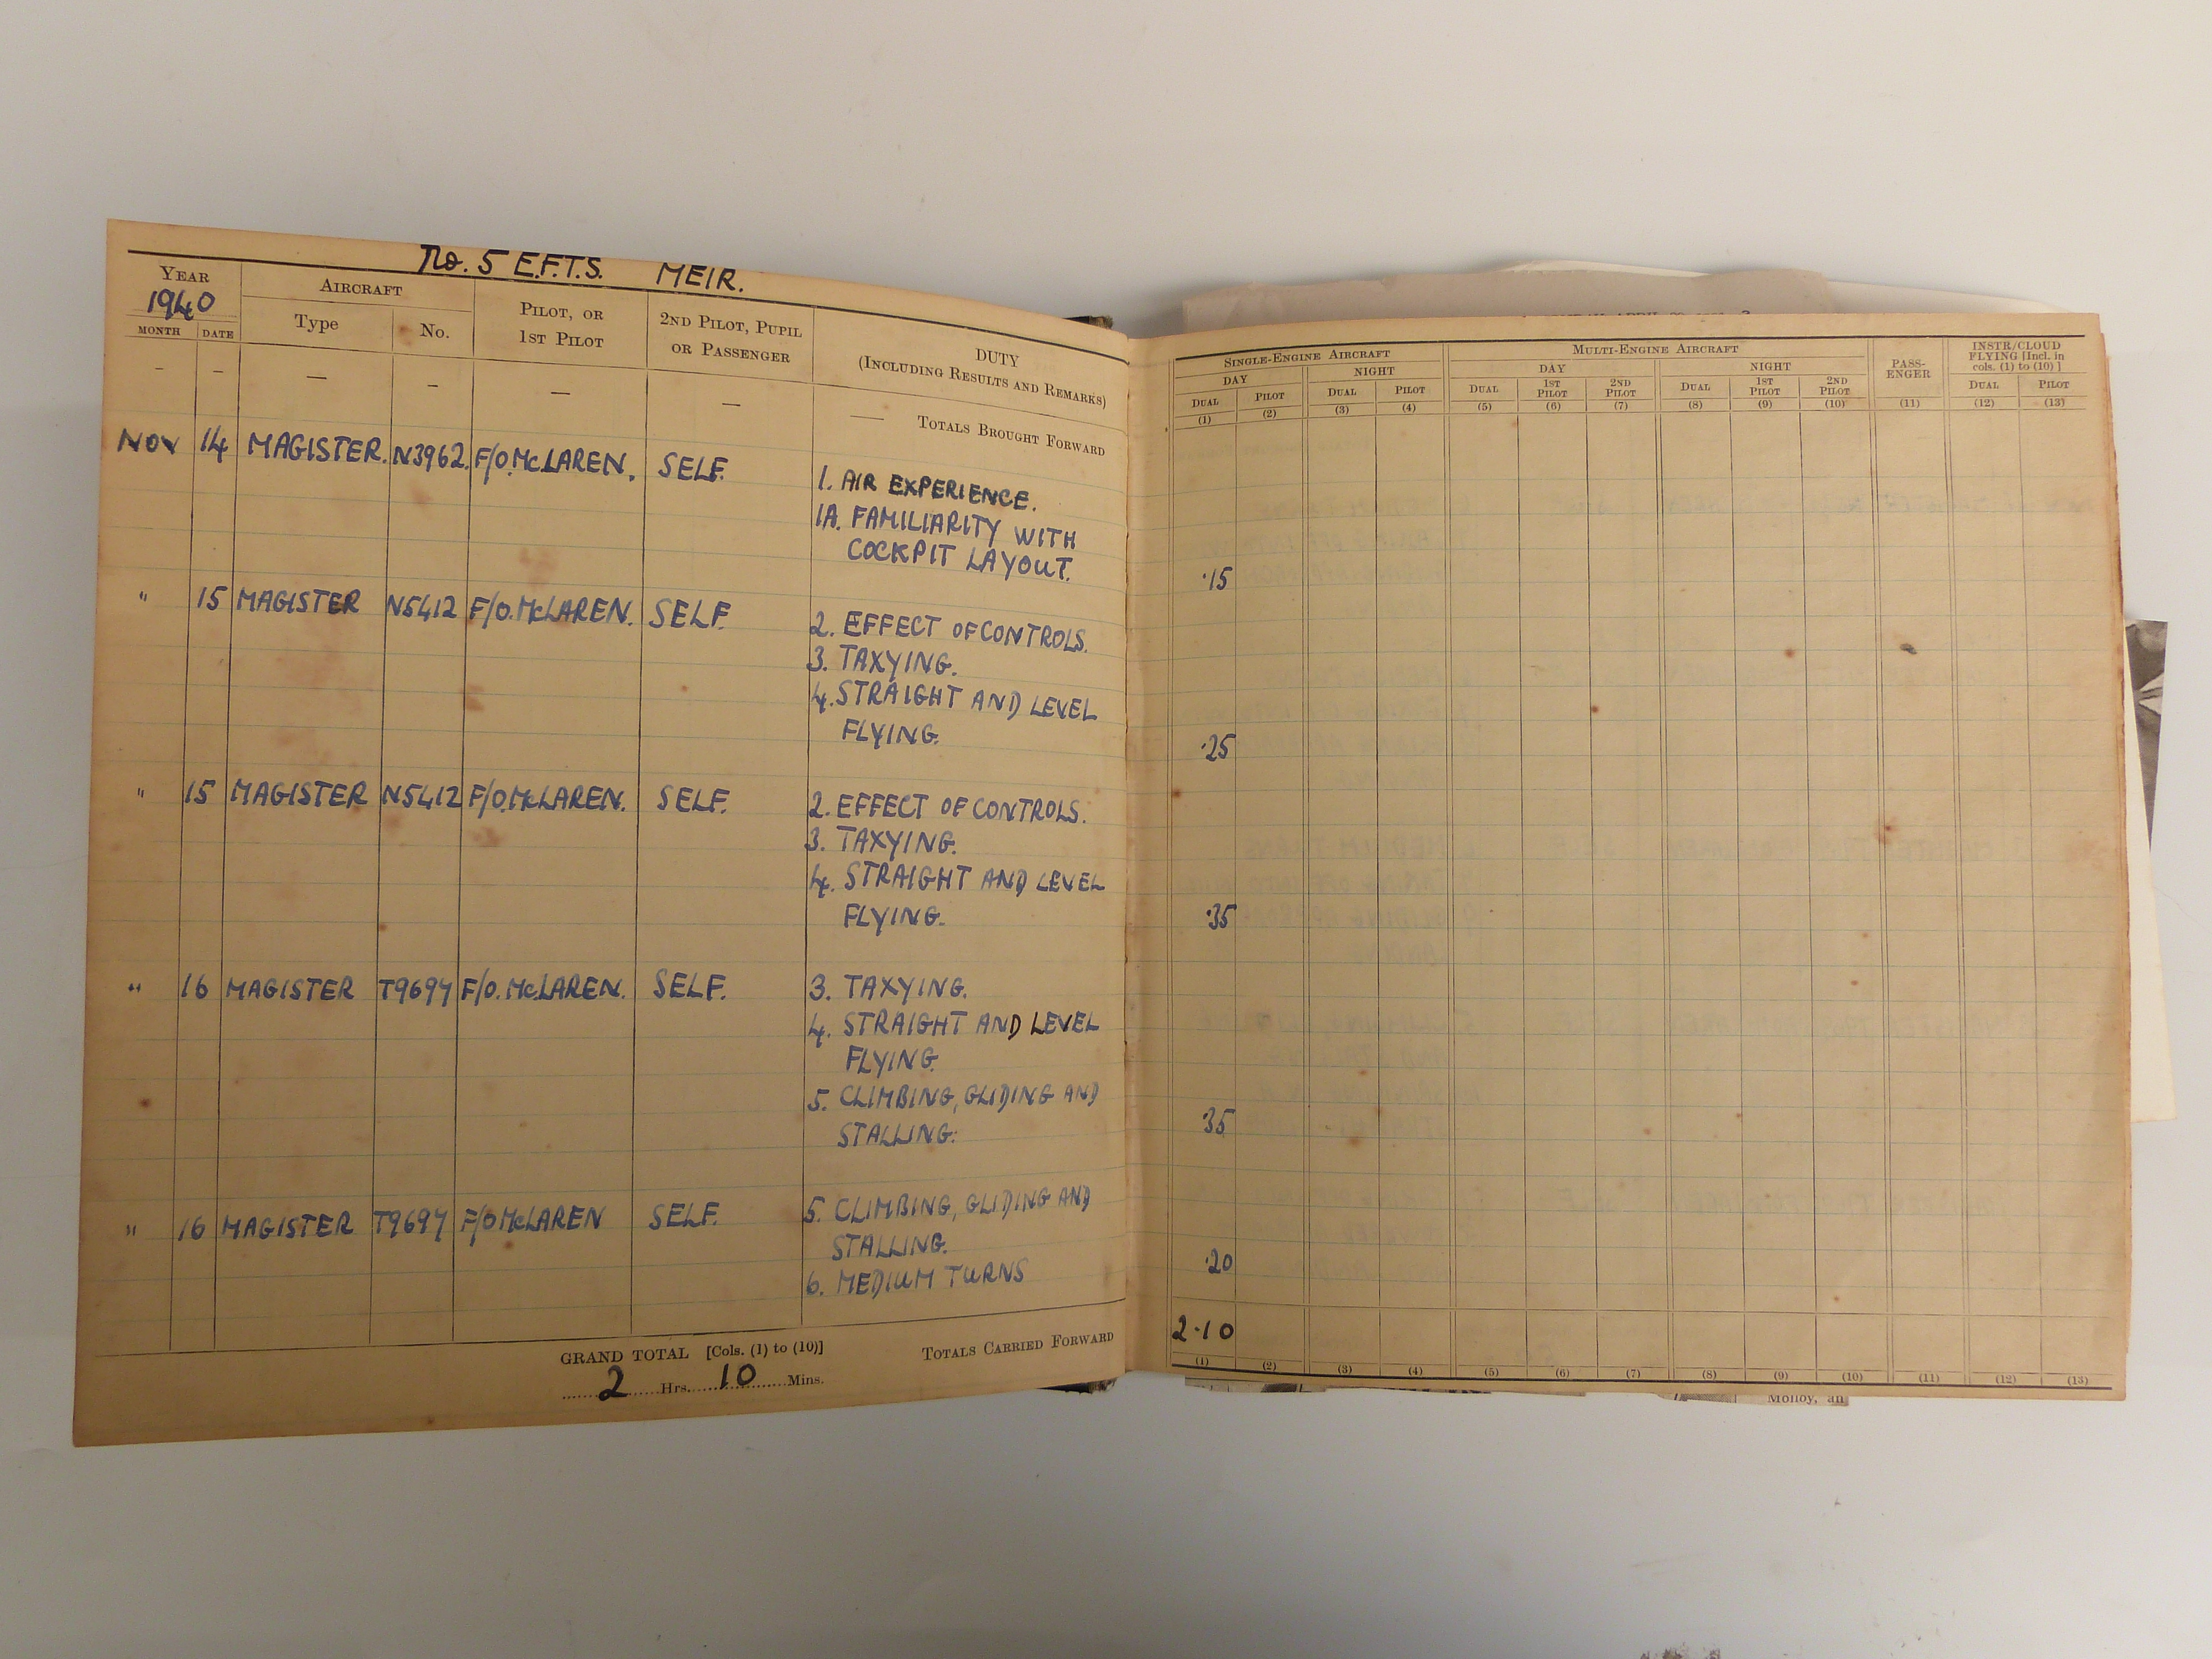 No. 5 E.F.T.S. MEIR.
YEAR
1940
MONTH DATE
AIRCRAFT
Type No.
PILOT, OR
1ST PILOT
2ND PILOT, PUPIL
OR PASSENGER
DUTY
(INCLUDING RESULTS AND REMARKS)
— — — — — — —
TOTALS BROUGHT FORWARD
NOV 14 MAGISTER. N3962. F/O. McLAREN. SELF. 1. AIR EXPERIENCE.
1A. FAMILIARITY WITH
COCKPIT LAYOUT.
" 15 MAGISTER N5412 F/O. McLAREN. SELF. 2. EFFECT OF CONTROLS.
3. TAXYING.
4. STRAIGHT AND LEVEL
FLYING.
" 15 MAGISTER N5412 F/O. McLAREN. SELF. 2. EFFECT OF CONTROLS.
3. TAXYING.
4. STRAIGHT AND LEVEL
FLYING.
" 16 MAGISTER T9694 F/O. McLAREN. SELF. 3. TAXYING.
4. STRAIGHT AND LEVEL
FLYING.
5. CLIMBING, GLIDING AND
STALLING.
" 16 MAGISTER T9694 F/O McLAREN SELF. 5. CLIMBING, GLIDING AND
STALLING.
6. MEDIUM TURNS
GRAND TOTAL [Cols. (1) to (10)]
2 Hrs. 10 Mins.
TOTALS CARRIED FORWARD
SINGLE-ENGINE AIRCRAFT MULTI-ENGINE AIRCRAFT PASS-
ENGER INSTR/CLOUD
FLYING [Incl. in
cols. (1) to (10) ]
DAY NIGHT DAY NIGHT
DUAL PILOT DUAL PILOT DUAL 1ST
PILOT 2ND
PILOT DUAL 1ST
PILOT 2ND
PILOT DUAL PILOT
(1) (2) (3) (4) (5) (6) (7) (8) (9) (10) (11) (12) (13)
·15
·25
·35
·35
·20
2·10
(1) (2) (3) (4) (5) (6) (7) (8) (9) (10) (11) (12) (13)
Molloy, an